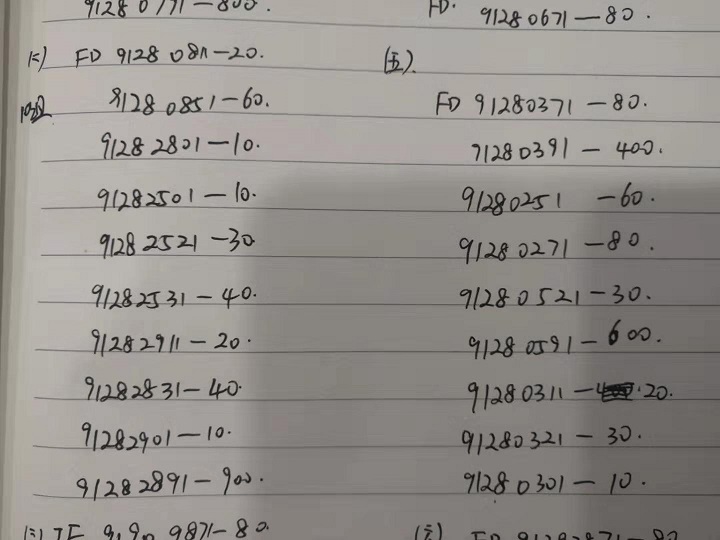 91280771-800.
(二) FD 91280811-20.
91280851-60.
91282801-10.
91282501-10.
91282521-30
91282531-40.
91282911-20.
91282831-40.
91282901-10.
91282891-900.
(三)
9871-80.
FD.
91280671-80.
(五).
FD 91280371-80.
91280391-400.
91280251-60.
91280271-80.
91280521-30.
91280591-600.
91280311-20.
91280321-30.
91280301-10.
(六) FD